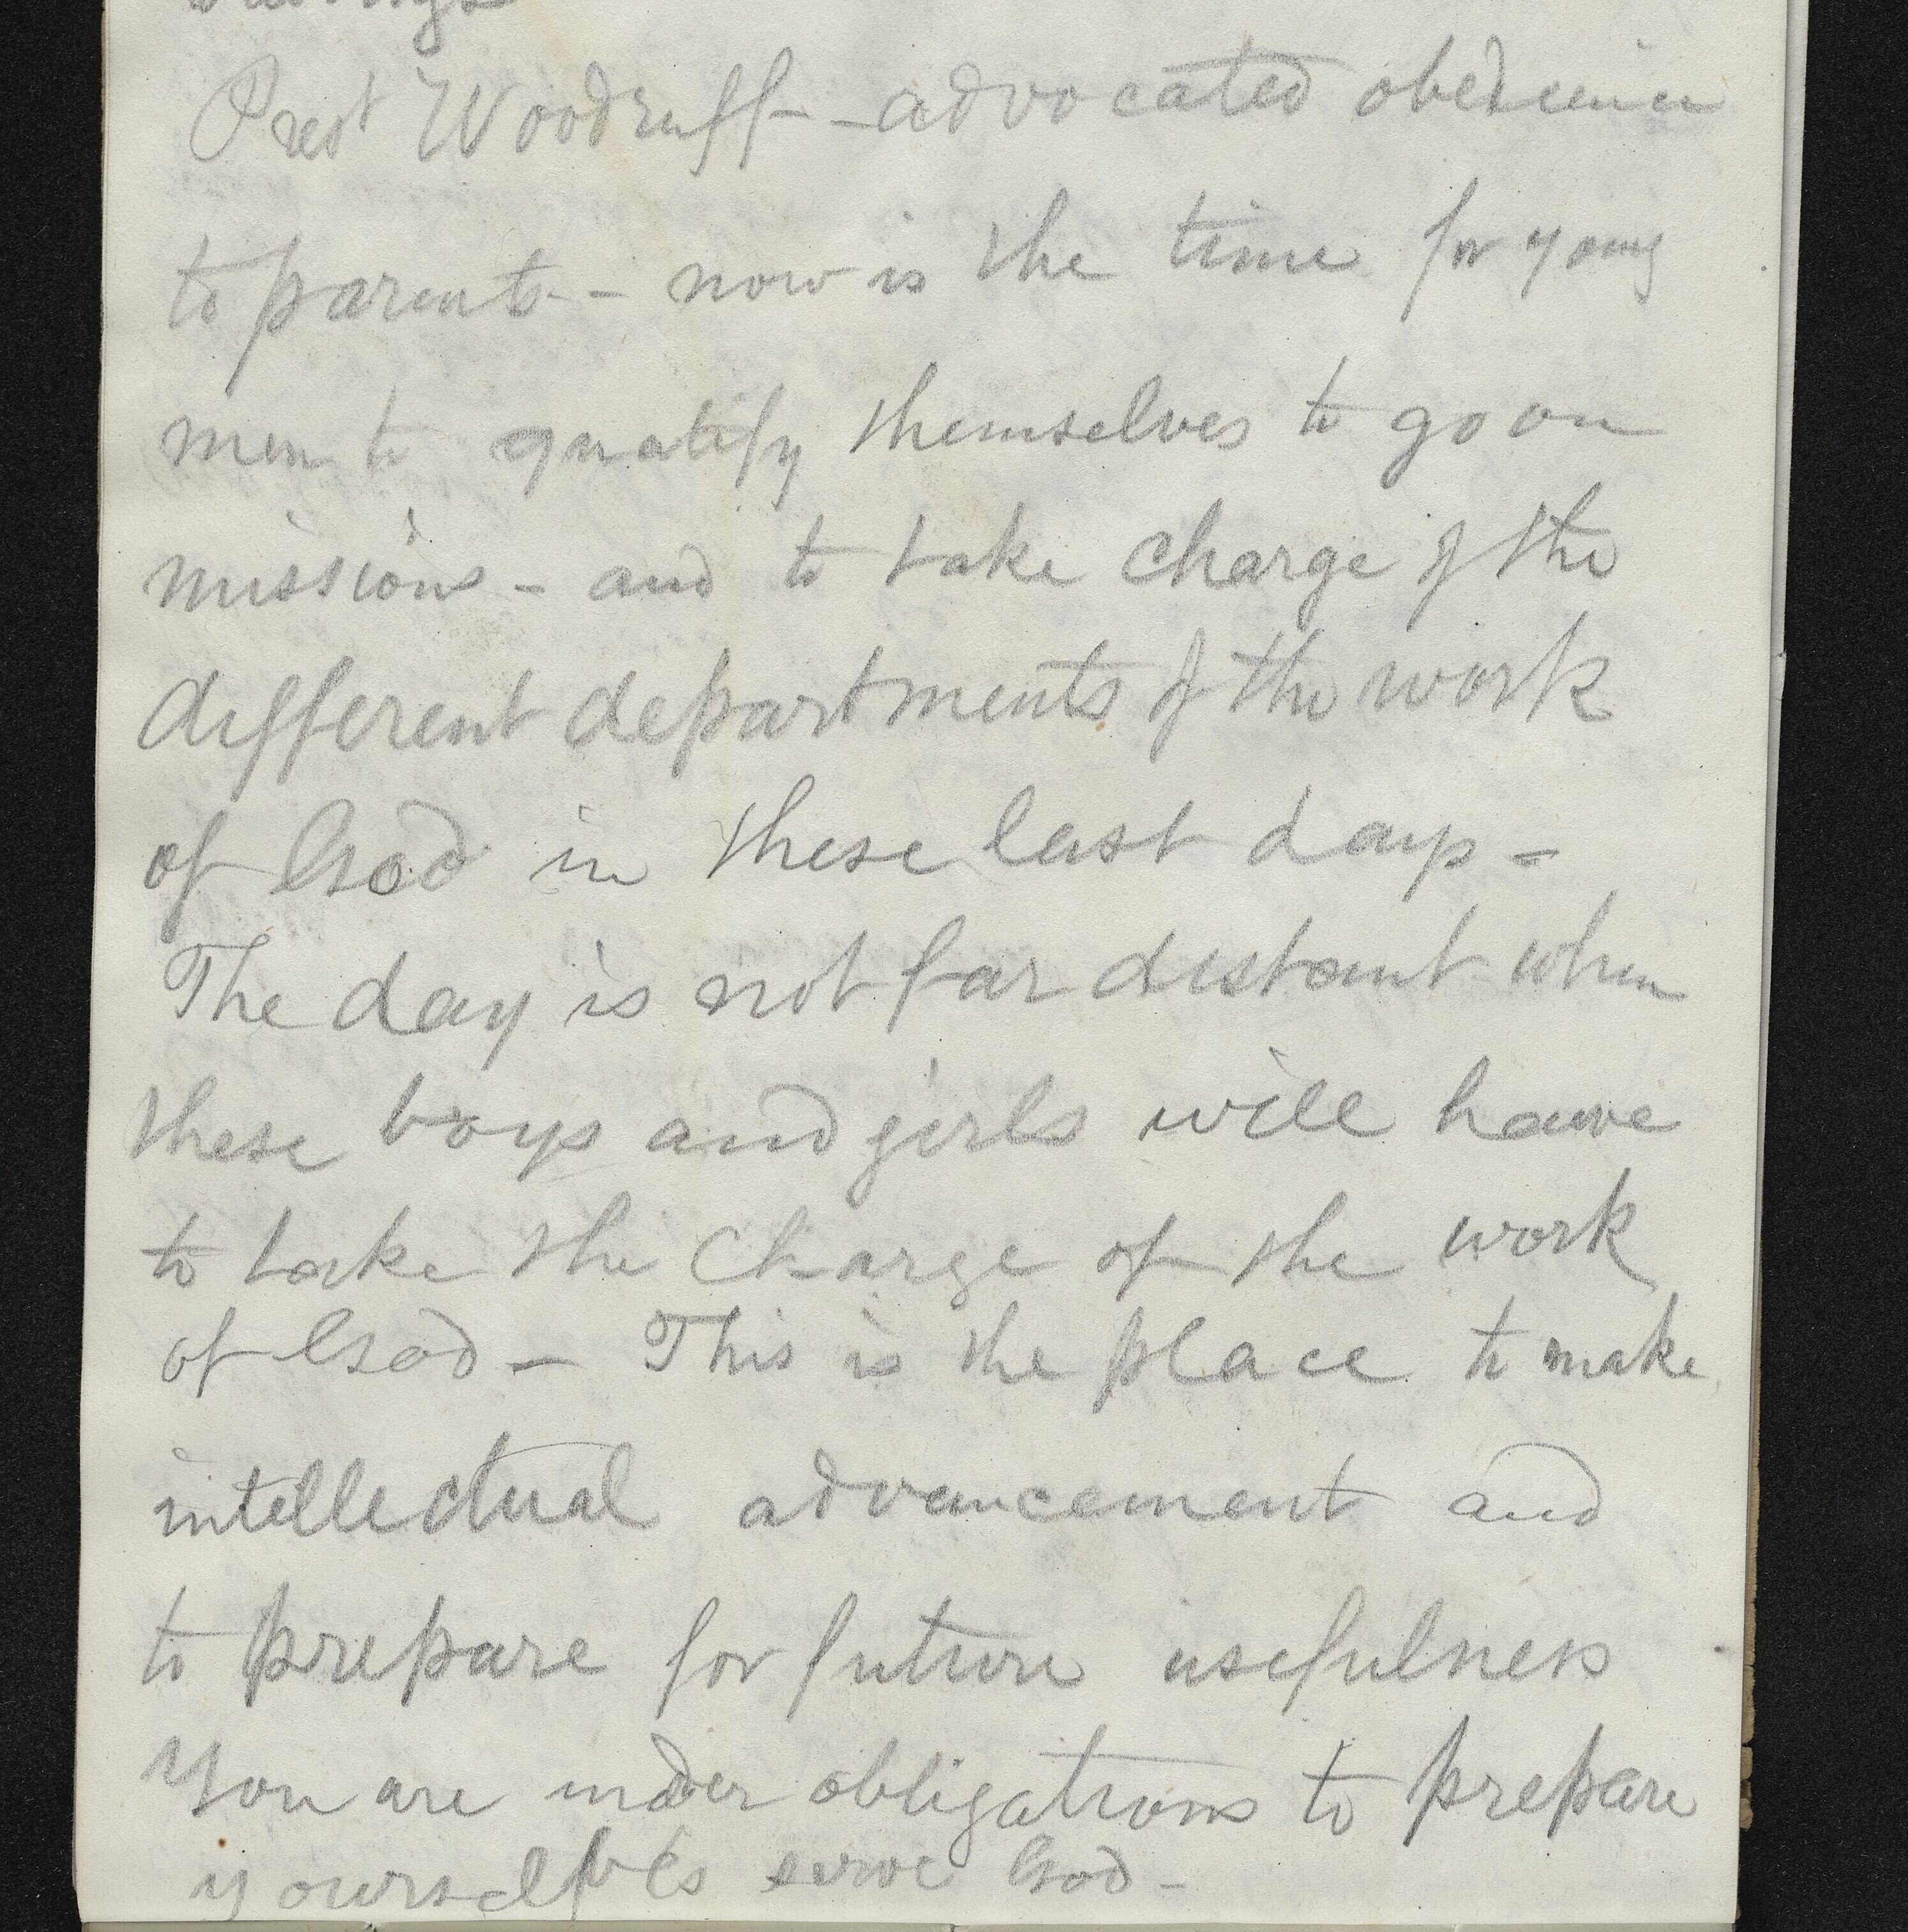 Prest Woodruff - advocated obedience
to parents - now is the time for young
men to qualify themselves to go on
missions - and to take charge of the
different departments of the work
of God in these last days -
The day is not far distant when
these boys and girls will have
to take the charge of the work
of God - This is the place to make
intellectual advancement and
to prepare for future usefulness
You are under obligations to prepare
yourselves serve God -